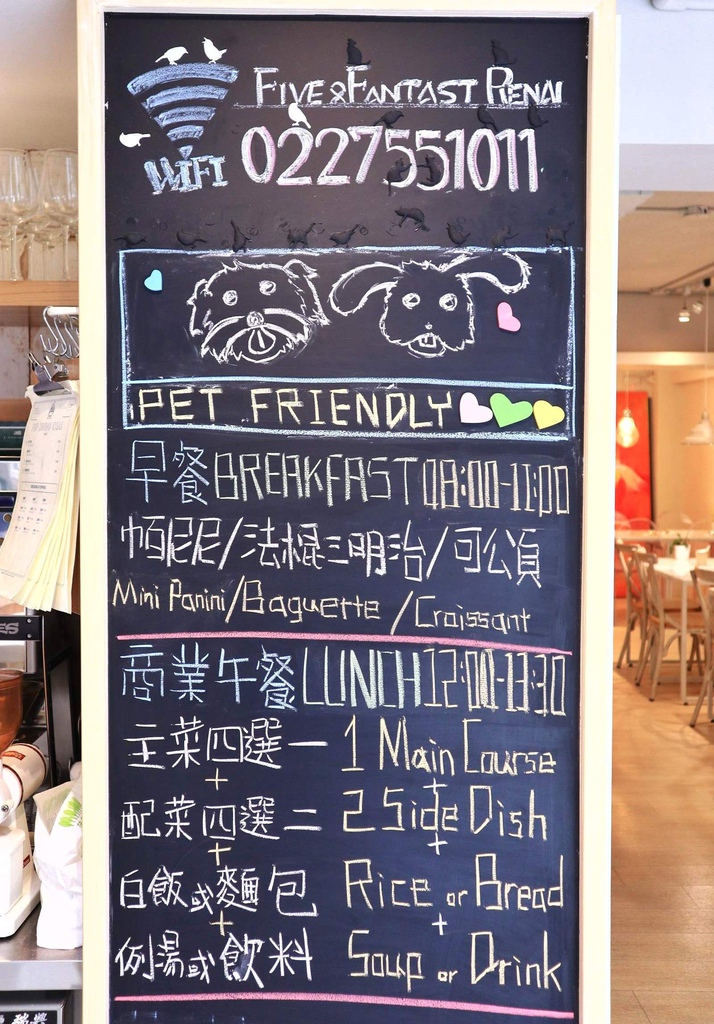 FIVE & FANTAST RENAI
WIFI 0227551011
PET FRIENDLY
早餐 BREAKFAST 08:00-11:00
帕尼尼/法棍三明治/可公頌
Mini Panini/Baguette/Croissant
商業午餐 LUNCH 12:00-13:30
主菜四選一 1 Main Course
+ +
配菜四選二 2 Side Dish
+ +
白飯或麵包 Rice or Bread
+ +
例湯或飲料 Soup or Drink